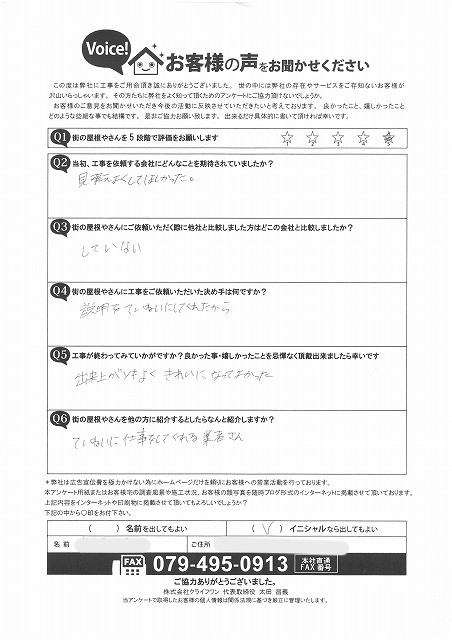 Voice!
お客様の声をお聞かせください
この度は弊社に工事をご用命頂き誠にありがとうございました。 世の中には弊社の存在やサービスをご存知ないお客様が
沢山いらっしゃいます。 その方たちに弊社をよく知って頂くためのアンケートにご協力頂けないでしょうか。
お客様のご意見をお聞かせいただき今後の活動に反映させていただきたいと考えております。 良かったこと、嬉しかったこと
どのような些細な事でも結構です。 是非ご協力お願い致します。 出来るだけ具体的に書いて頂ければ幸いです。
Q1 街の屋根やさんを5段階で評価をお願いします ☆ ☆ ☆ ☆ ☆
Q2 当初、工事を依頼する会社にどんなことを期待されていましたか?
見栄えよくしてほしかった。
Q3 街の屋根やさんにご依頼いただく際に他社と比較しました方はどこの会社と比較しましたか?
していない
Q4 街の屋根やさんに工事をご依頼いただいた決め手は何ですか?
説明をていねいにしてくれたから
Q5 工事が終わってみていかがですか?良かった事・嬉しかったことを忌憚なく頂戴出来ましたら幸いです
出来上がりもよく きれいになってよかった
Q6 街の屋根やさんを他の方に紹介するとしたらなんと紹介しますか?
ていねいに仕事をしてくれる業者さん
*弊社は広告宣伝費を極力かけない為にホームページだけを頼りにお客様への営業活動を行っております。
本アンケート用紙またはお客様宅の調査風景や施工状況、お客様の顔写真を随時ブログ形式のインターネットに掲載させて頂いております。
上記内容をインターネットや印刷物に掲載させて頂いてもよろしいでしょうか?
下記の中から〇印をお付下さい。
( ) 名前を出してもよい (✓) イニシャルなら出してもよい
名前 ご住所
FAX 079-495-0913 本社直通 FAX番号
ご協力ありがとうございました。
株式会社クライフワン 代表取締役 太田 昌義
当アンケートで取得したお客様の個人情報は関係法規に基づき厳正に管理いたします。